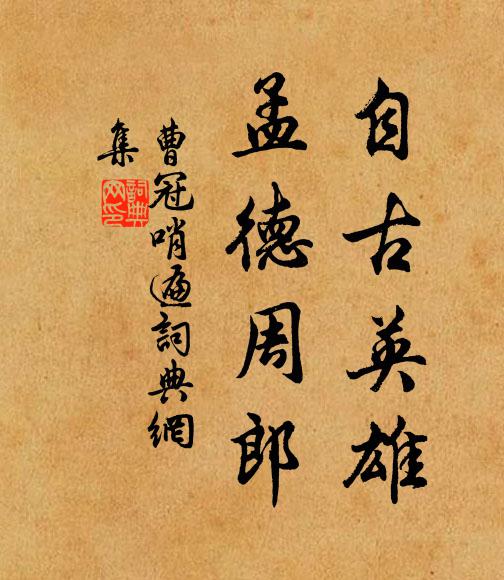 自古英雄
孟德周郎
曹冠哨遍詞典網
集
詞典网印